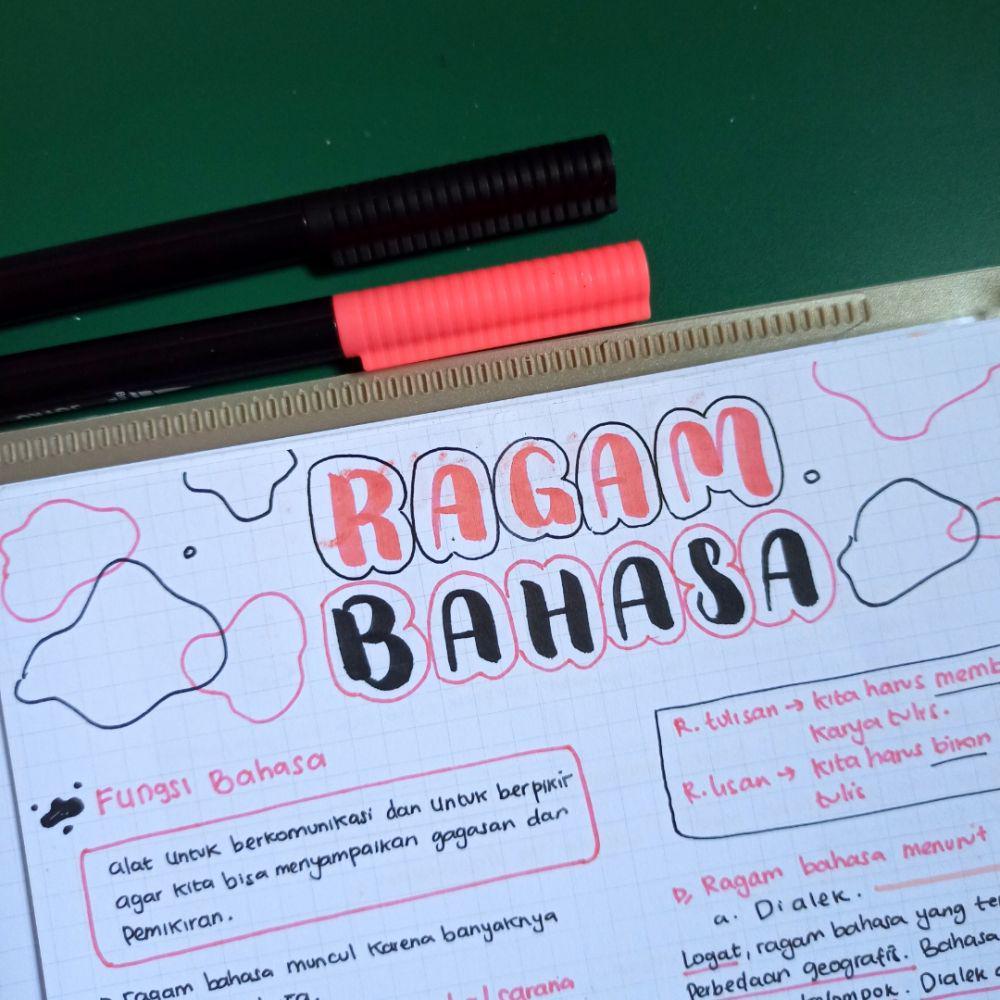 RAGAM
BAHASA
Fungsi Bahasa
alat untuk berkomunikasi dan untuk berpikir
agar kita bisa menyampaikan gagasan dan
pemikiran.
ragam bahasa muncul karena banyaknya
sarana
R. tulisan → kita harus
karya tulis.
R. lisan → kita harus
tulis
Ragam bahasa menurut
a. Dialek.
Logat, ragam bahasa yang
Perbedaan geografi. Bahasa
Dialek